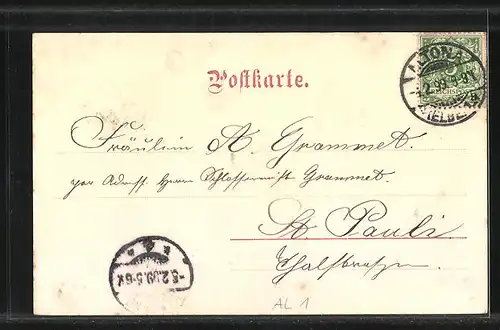 Postkarte.
ALTONA
REICHSPOST
(ELBE)
Fräulein A. Grammet
per Adress. Herrn Schlossermst Grammet.
St. Pauli
Thalstrasse.
5.2.99.5-6
AL 1